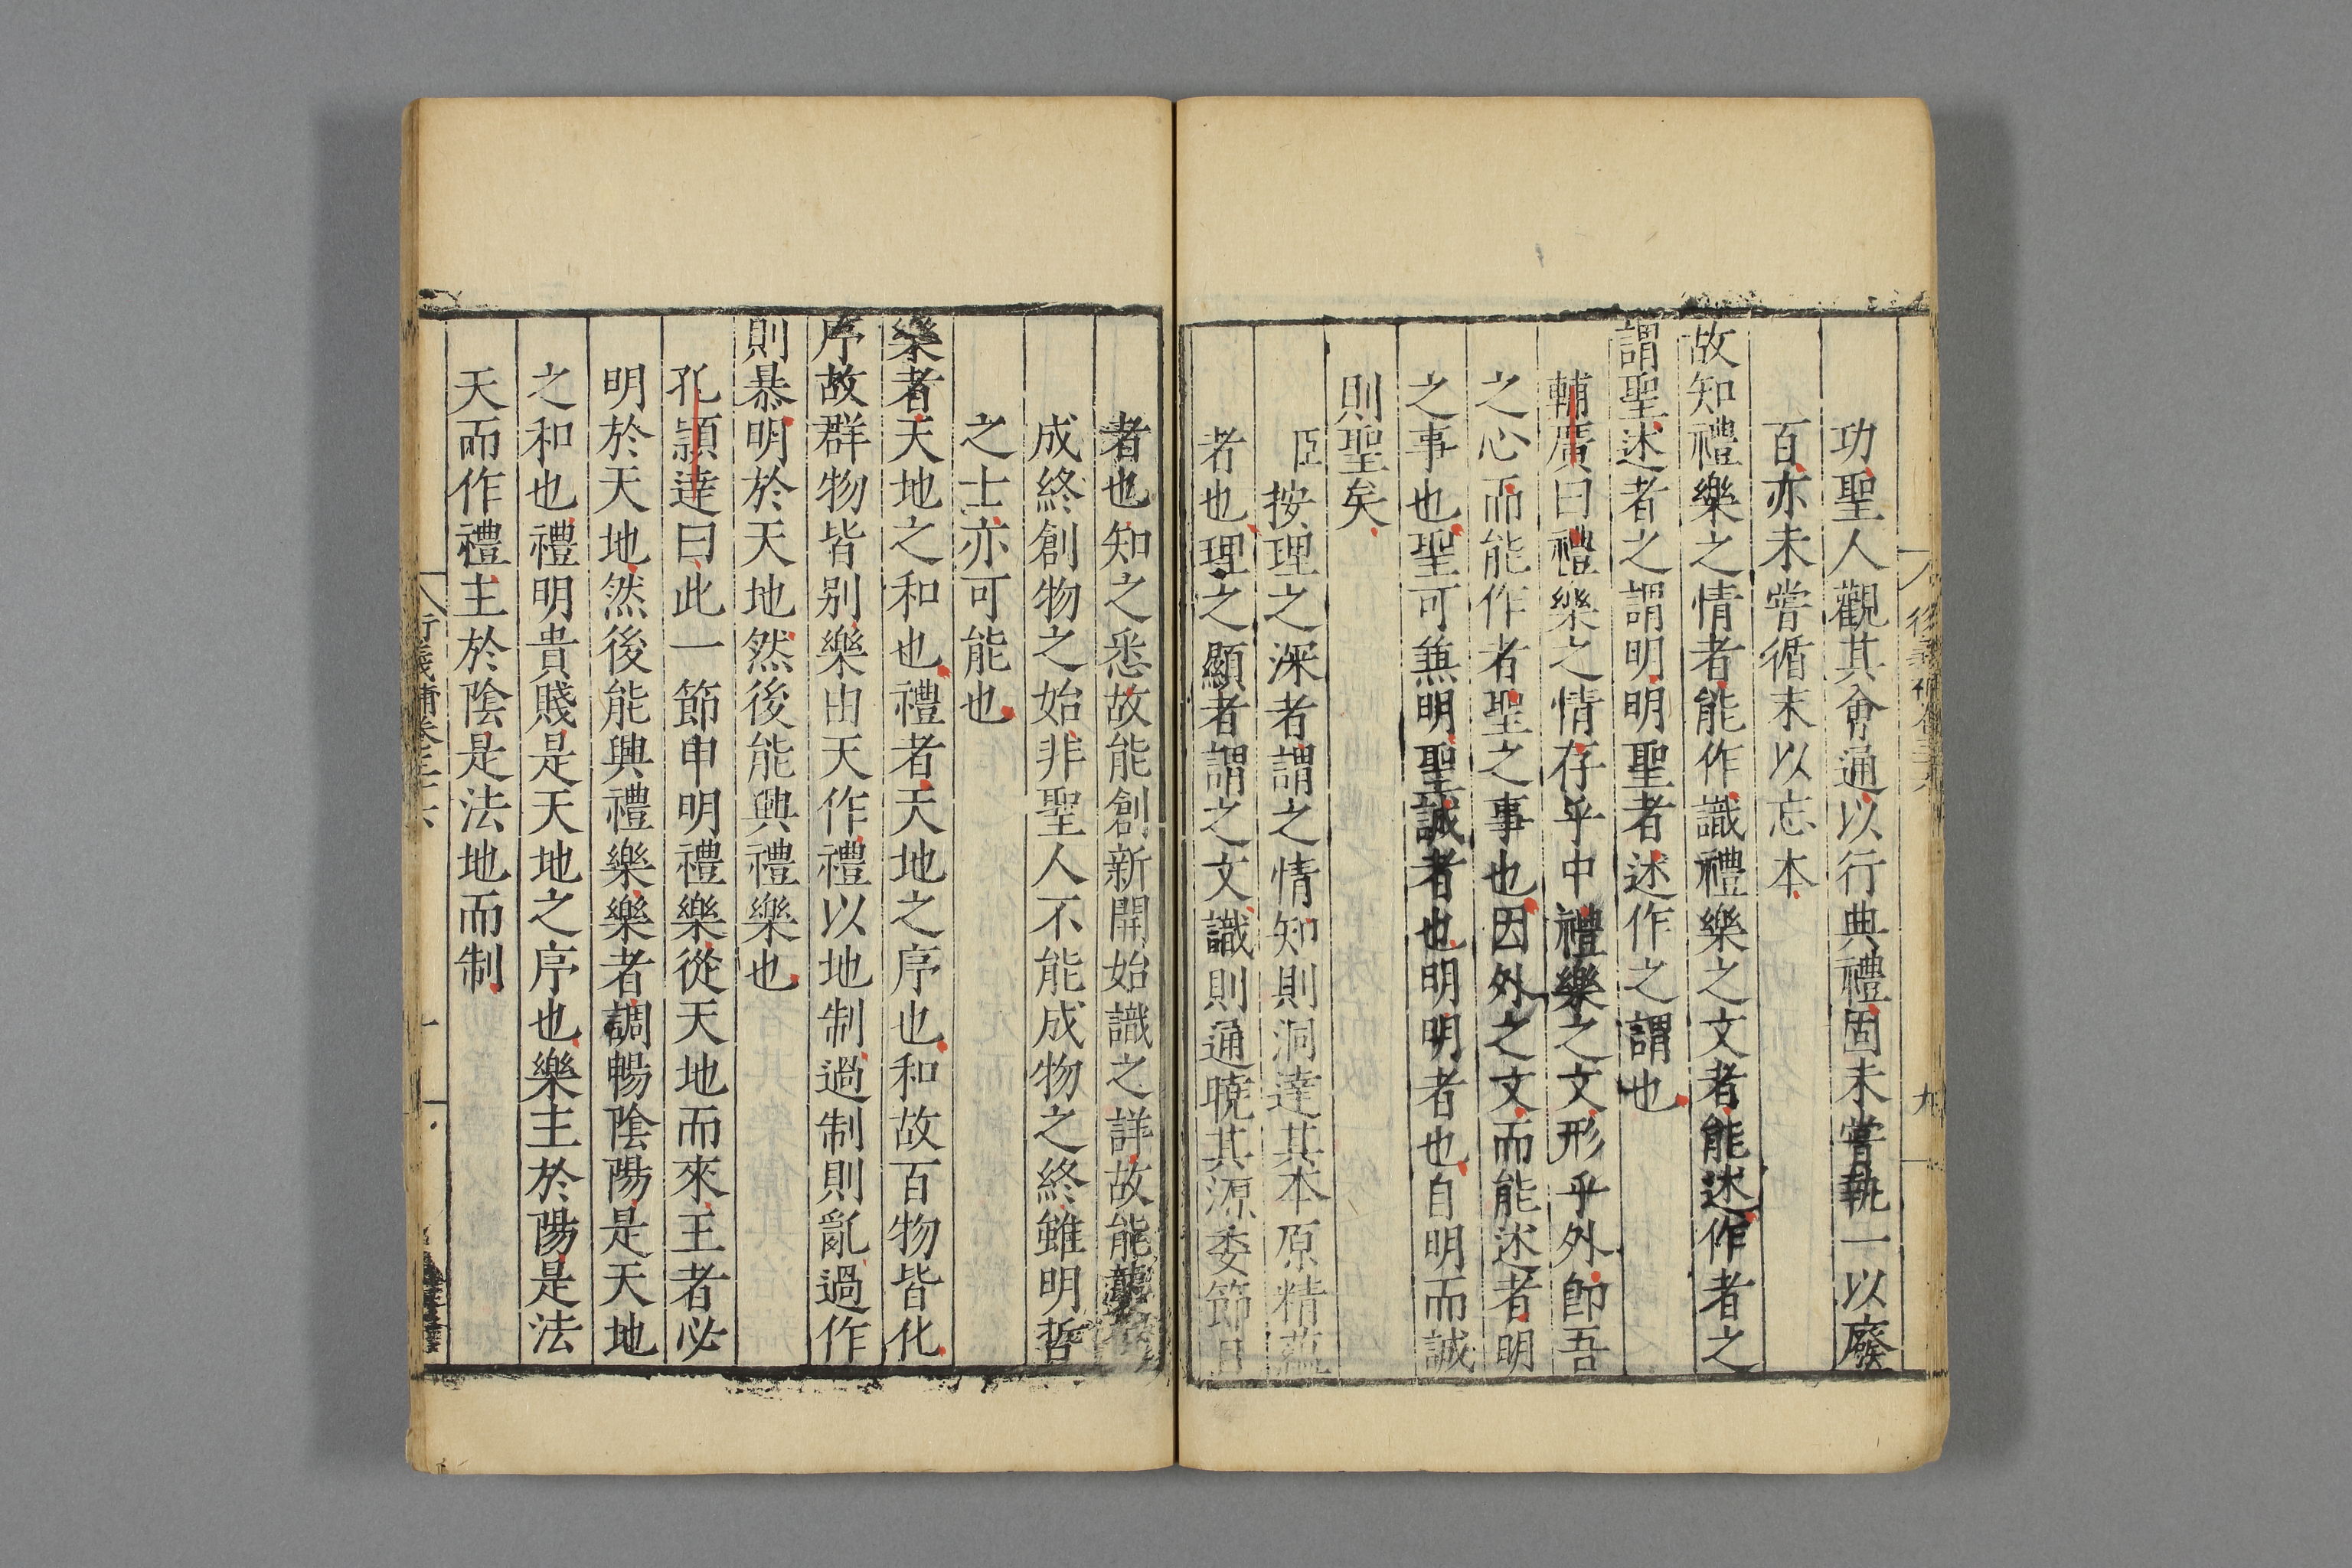 功聖人觀其會通以行典禮固未嘗執一以廢
百亦未嘗循末以忘本
故知禮樂之情者能作識禮樂之文者能述作者之
謂聖述者之謂明明聖者述作之謂也
輔廣曰禮樂之情存乎中禮樂之文形乎外卽吾
之心而能作者聖之事也因外之文而能述者明
之事也聖可兼明聖誠者也明明者也自明而誠
則聖矣
臣按理之深者謂之情知則洞達其本原精蘊
者也理之顯者謂之文識則通曉其源委節目
者也知之悉故能創新開始識之詳故能
成終創物之始非聖人不能成物之終雖明哲
之士亦可能也
樂者天地之和也禮者天地之序也和故百物皆化
序故群物皆別樂由天作禮以地制過制則亂過作
則暴明於天地然後能興禮樂也
孔穎達曰此一節申明禮樂從天地而來王者必
明於天地然後能興禮樂樂者調暢陰陽是天地
之和也禮明貴賤是天地之序也樂主於陽是法
天而作禮主於陰是法地而制